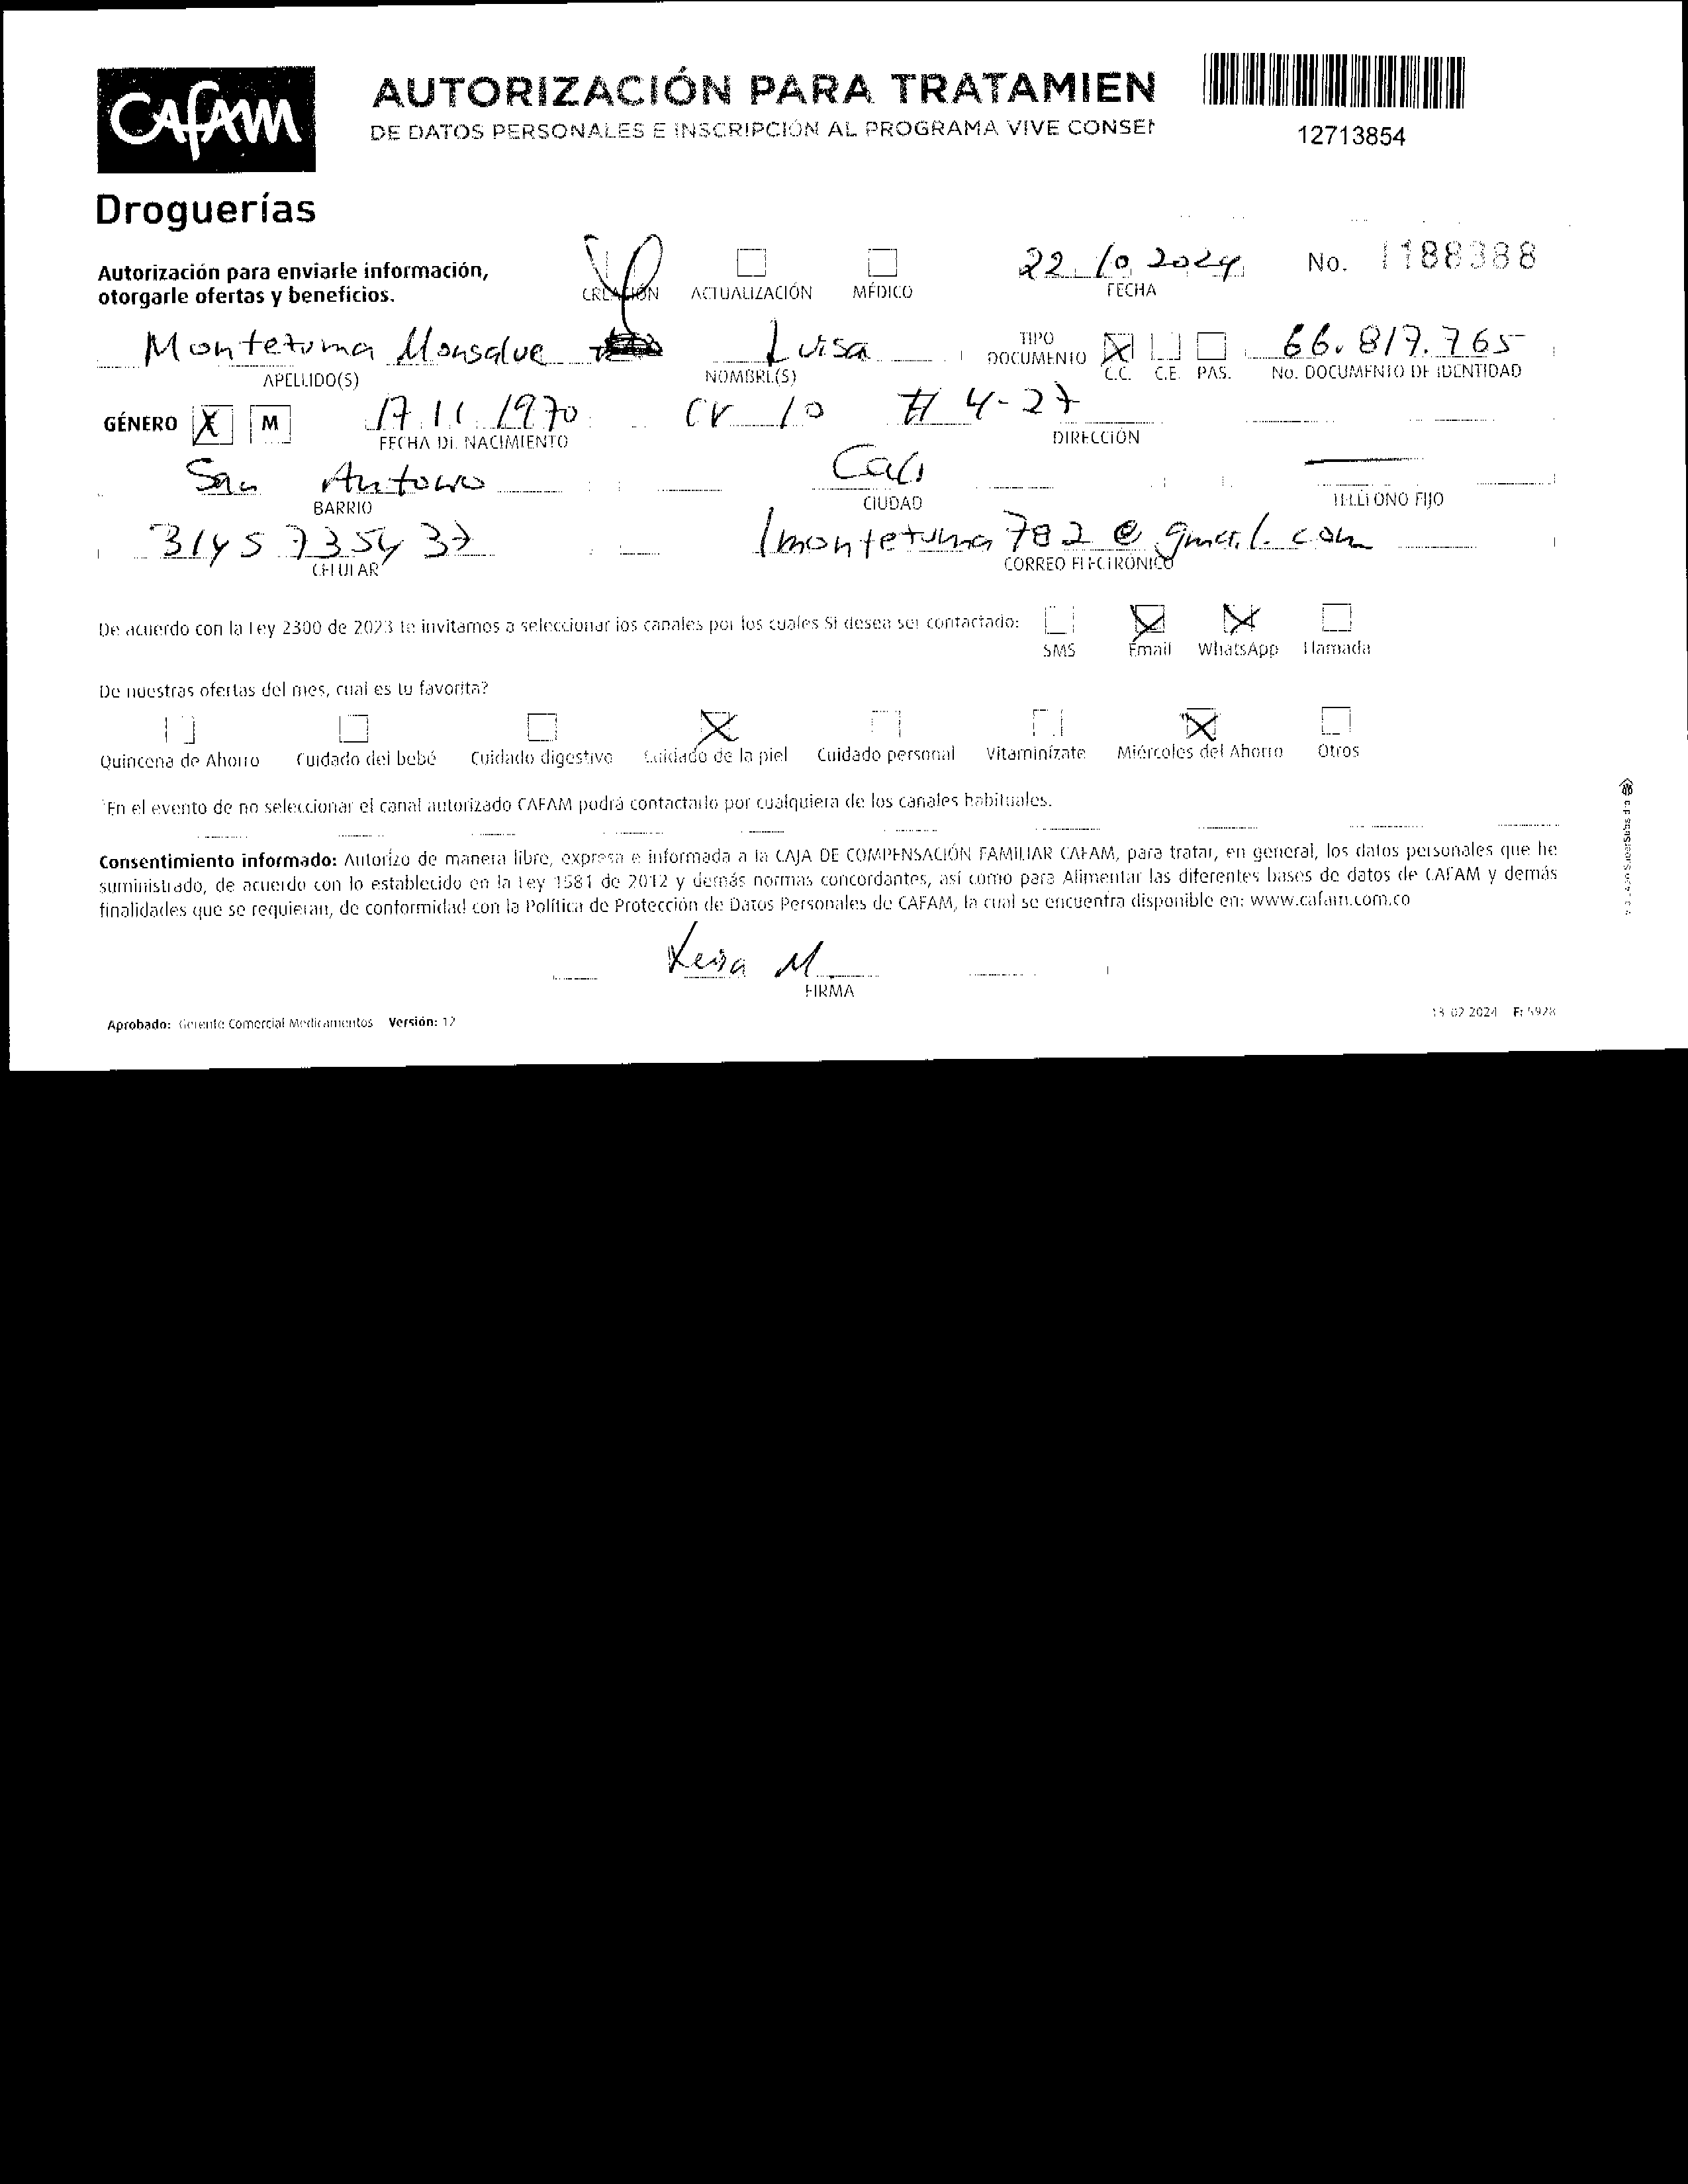 CAFAM
AUTORIZACIÓN PARA TRATAMIEN
DE DATOS PERSONALES E INSCRIPCIÓN AL PROGRAMA VIVE CONSEN
12713854
Droguerías
Autorización para enviarle información,
otorgarle ofertas y beneficios.
CREACIÓN ACTUALIZACIÓN MÉDICO
22 10 2024
FECHA
No. 1188388
Montezuma Monsalve Luisa
APELLIDO(S) NOMBRE(S)
TIPO DOCUMENTO X C.C. C.E. PAS.
66.817.765
No. DOCUMENTO DE IDENTIDAD
GÉNERO X M 17 11 1970 cr 10 # 4-27
FECHA DE NACIMIENTO DIRECCIÓN
San Antonio Cali
BARRIO CIUDAD TELÉFONO FIJO
3145735437 lmontezuma782@gmail.com
CELULAR CORREO ELECTRÓNICO
De acuerdo con la Ley 2300 de 2023 te invitamos a seleccionar los canales por los cuales SI desea ser contactado:
SMS Email WhatsApp Llamada
De nuestras ofertas del mes, cual es tu favorita?
Quincena de Ahorro Cuidado del bebé Cuidado digestivo Cuidado de la piel Cuidado personal Vitaminízate Miércoles del Ahorro Otros
*En el evento de no seleccionar el canal autorizado CAFAM podrá contactarlo por cualquiera de los canales habituales.
Consentimiento informado: Autorizo de manera libre, expresa e informada a la CAJA DE COMPENSACIÓN FAMILIAR CAFAM, para tratar, en general, los datos personales que he
suministrado, de acuerdo con lo establecido en la Ley 1581 de 2012 y demás normas concordantes, así como para Alimentar las diferentes bases de datos de CAFAM y demás
finalidades que se requieran, de conformidad con la Política de Protección de Datos Personales de CAFAM, la cual se encuentra disponible en: www.cafam.com.co
Luisa M
FIRMA
Aprobado: Gerente Comercial Medicamentos Versión: 12
13 02 2024 F: 5928